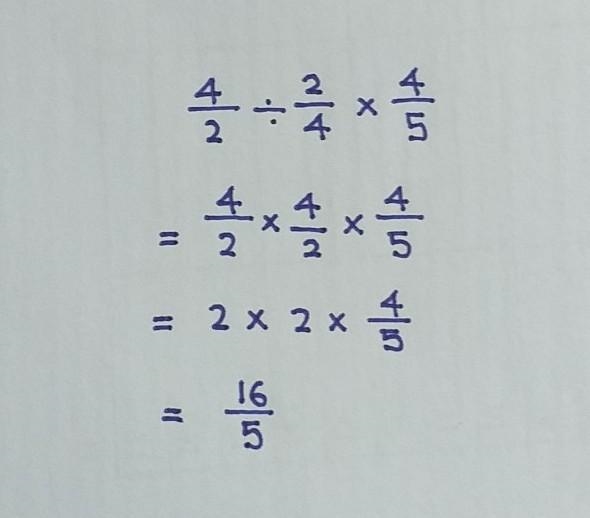 4/2 ÷ 2/4 × 4/5
= 4/2 × 4/2 × 4/5
= 2 × 2 × 4/5
= 16/5